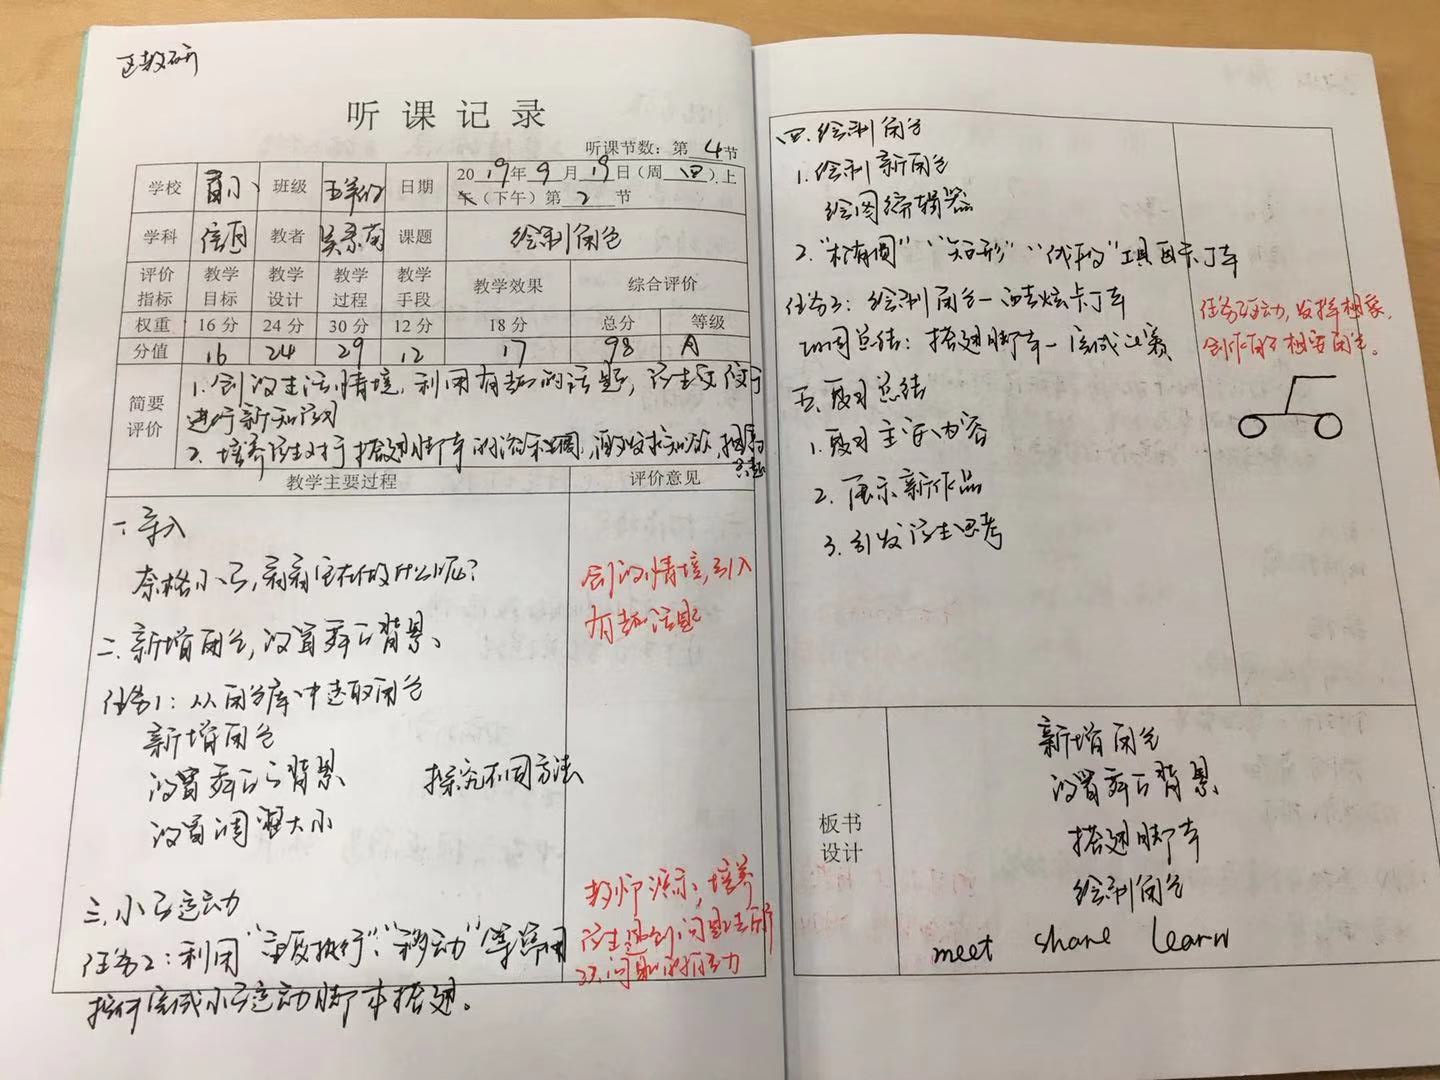 区教研
听课记录
听课节数：第 4 节
学校 班级 日期 2019年9月19日（周四）上
午（下午）第 2 节
学科 信息 教者 课题 绘制角色
评价指标 教学目标 教学设计 教学过程 教学手段 教学效果 综合评价
权重 16分 24分 30分 12分 18分 总分 等级
分值 16 24 29 12 17 98 A
简要评价
1. 创设生活情境，利用有趣的话题，
进行新知学习
2. 培养学生对于搭建脚本的
教学主要过程 评价意见
一、导入
奈格小子，看看它在做什么呢？
创设情境，引入
有趣话题
二、新增角色，设置舞台背景、
任务1：从角色库中选取角色
新增角色
设置舞台背景 探究不同方法
设置调整大小
三、小子运动
任务2：利用“重复执行”、“移动”等常用
控件完成小子运动脚本搭建。
教师演示，培养
学生遇到问题去所
决问题的能力
四、绘制角色
1. 绘制新角色
绘图编辑器
2. “椭圆”“矩形”“线段”工具画卡丁车
任务3：绘制角色—酷炫卡丁车
巩固总结：搭建脚本—完成比赛
任务驱动，发挥想象，
创作自己想要角色。
五、复习总结
1. 复习主要内容
2. 展示新作品
3. 引发学生思考
板书设计
新增角色
设置舞台背景
搭建脚本
绘制角色
meet share learn